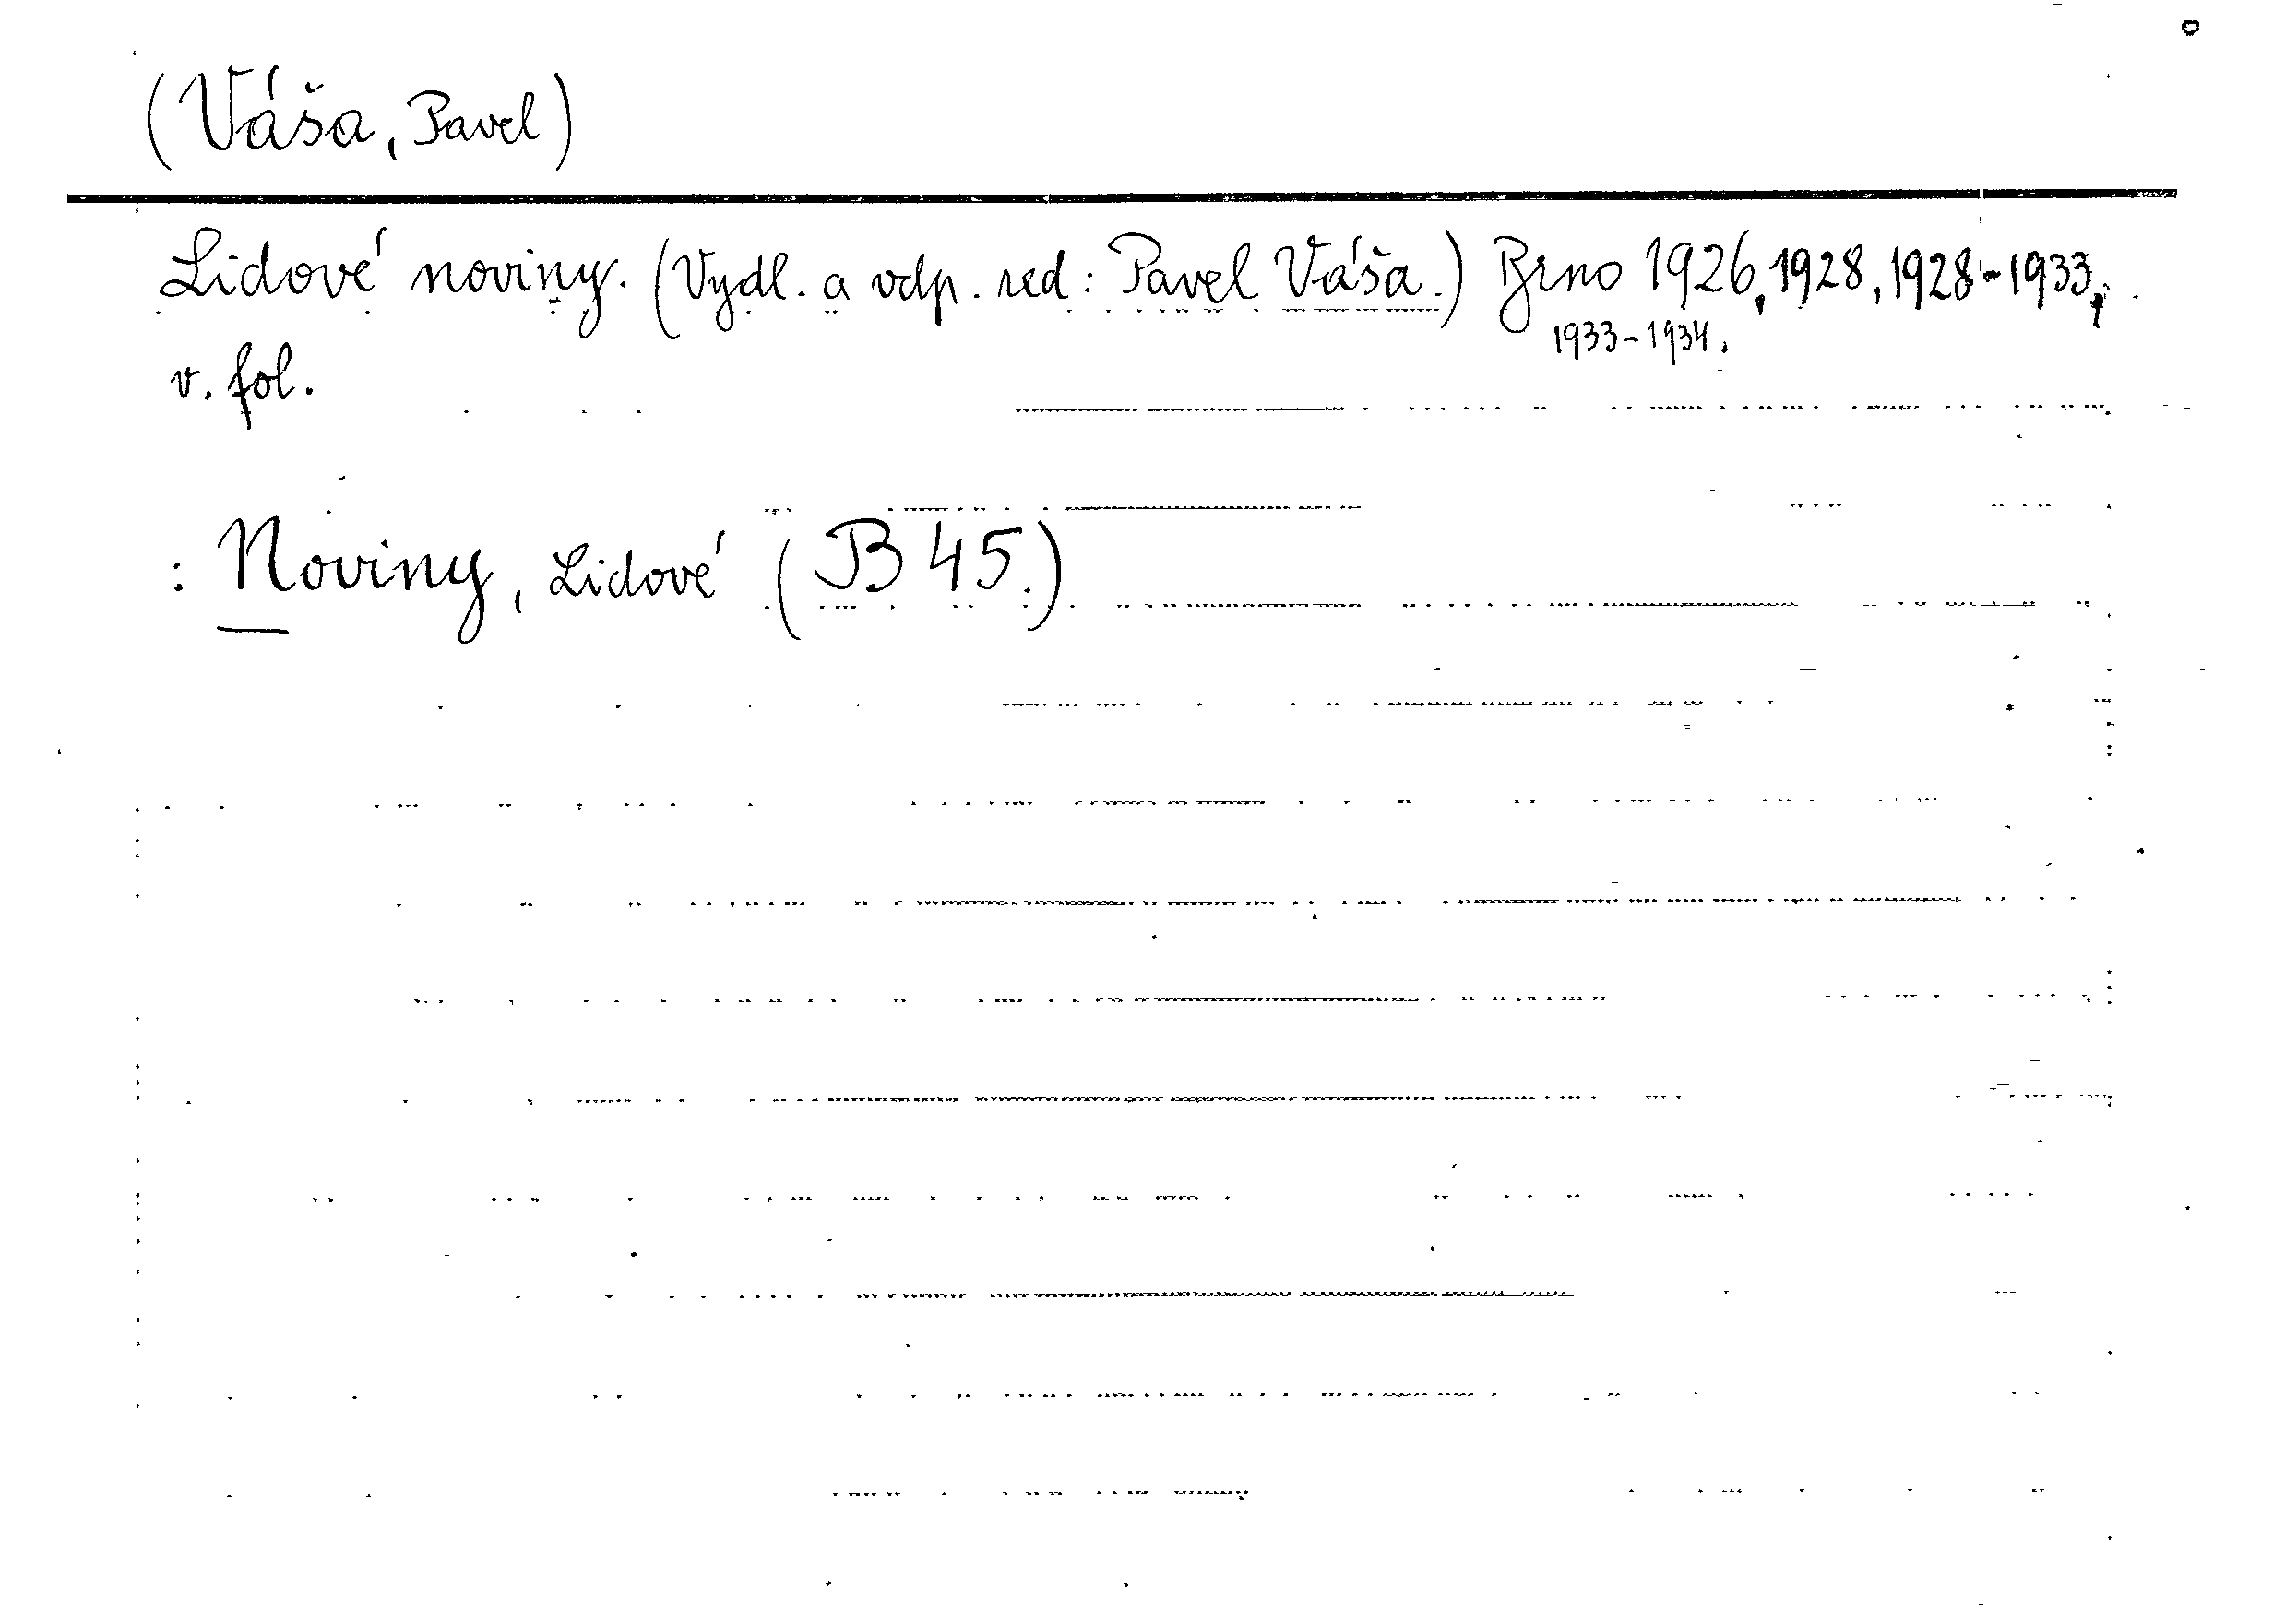 (Váša, Pavel)
Lidové noviny. (Vydl. a odp. red: Pavel Váša.) Brno 1926, 1928, 1928-1933,
1933-1934.
v. fol.
: Noviny, Lidové (B 45.)